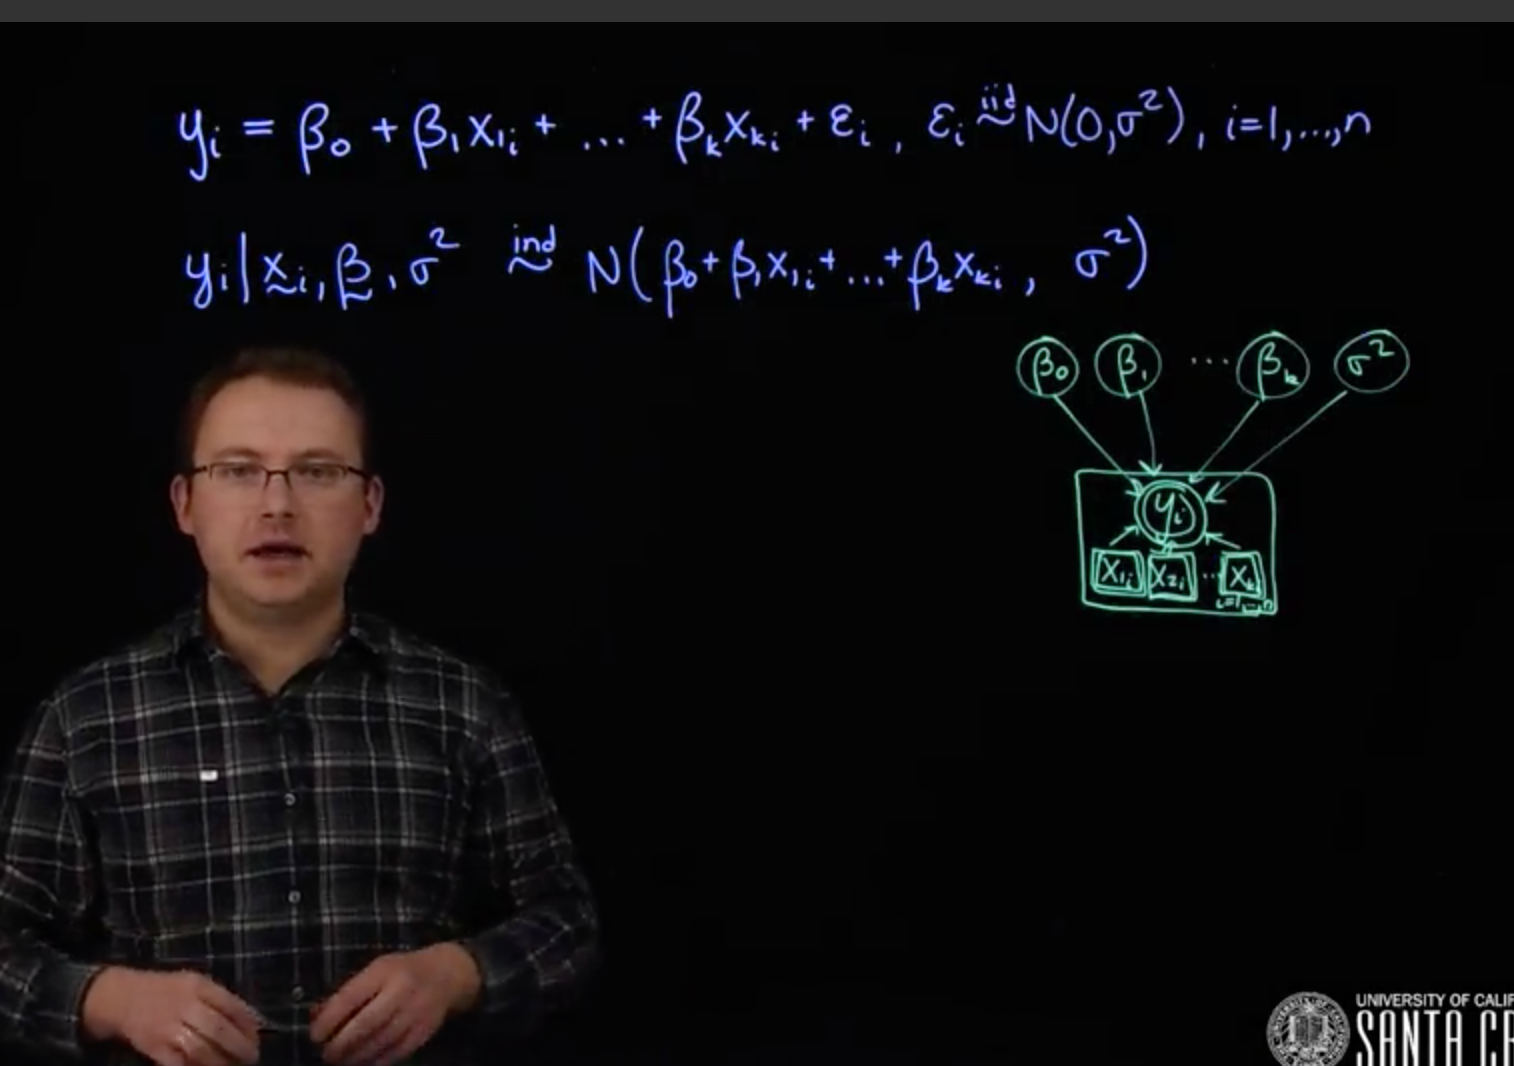 yᵢ = β₀ + β₁x₁ᵢ + ... + βₖxₖᵢ + εᵢ , εᵢ iid~ N(0,σ²), i=1,...,n
yᵢ | x̰ᵢ, β̰, σ² ind~ N(β₀+β₁x₁ᵢ+...+βₖxₖᵢ, σ²)
β₀ β₁ ... βₖ σ²
yᵢ
x₁ᵢ x₂ᵢ ... xₖᵢ
i=1,...,n
UNIVERSITY OF CALIF
SANTA CR